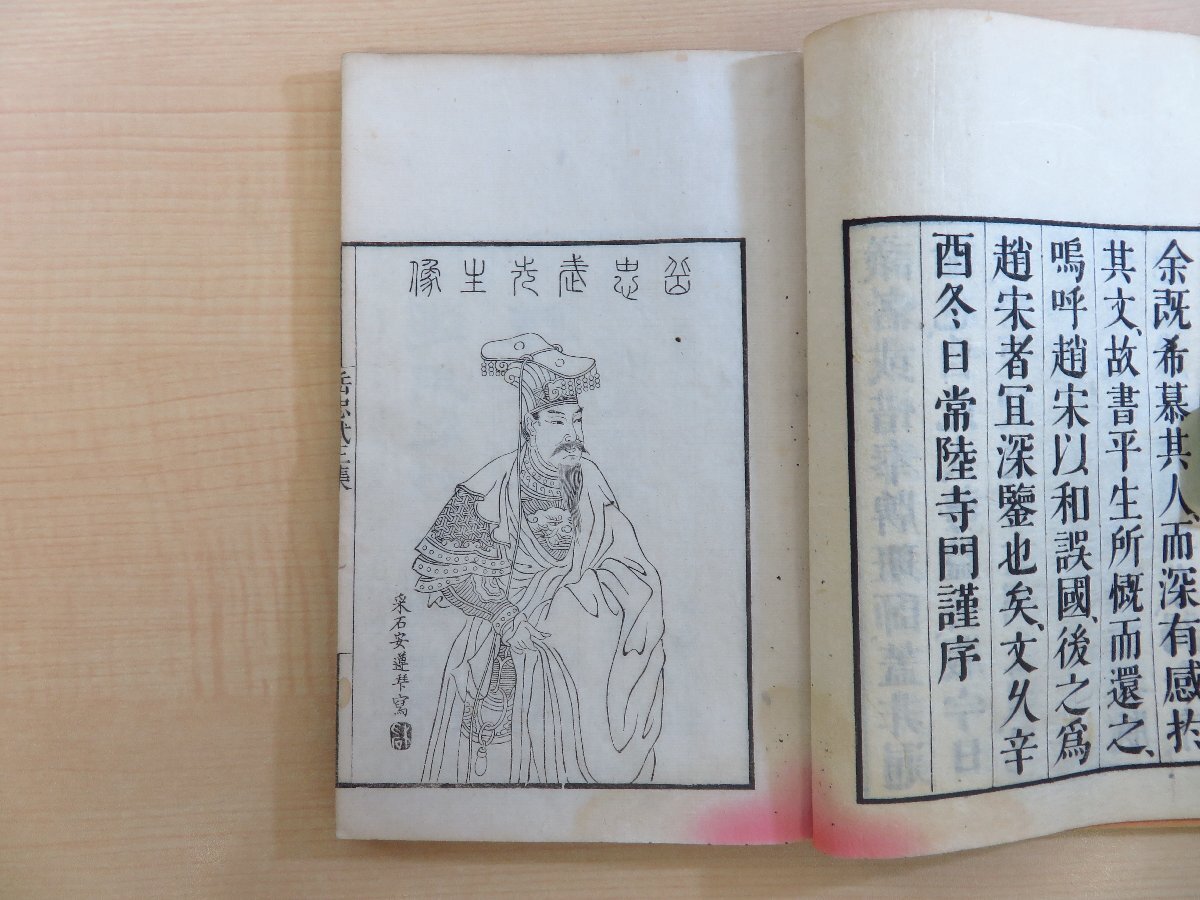 余既希慕其人、而深有感於
其文、故書平生所慨而還之、
嗚呼趙宋以和誤國、後之為
趙宋者宜深鑒也矣、文久辛
酉冬日常陸寺門謹序
岳忠武先生像
采石安遵琴寫
岳忠武王集